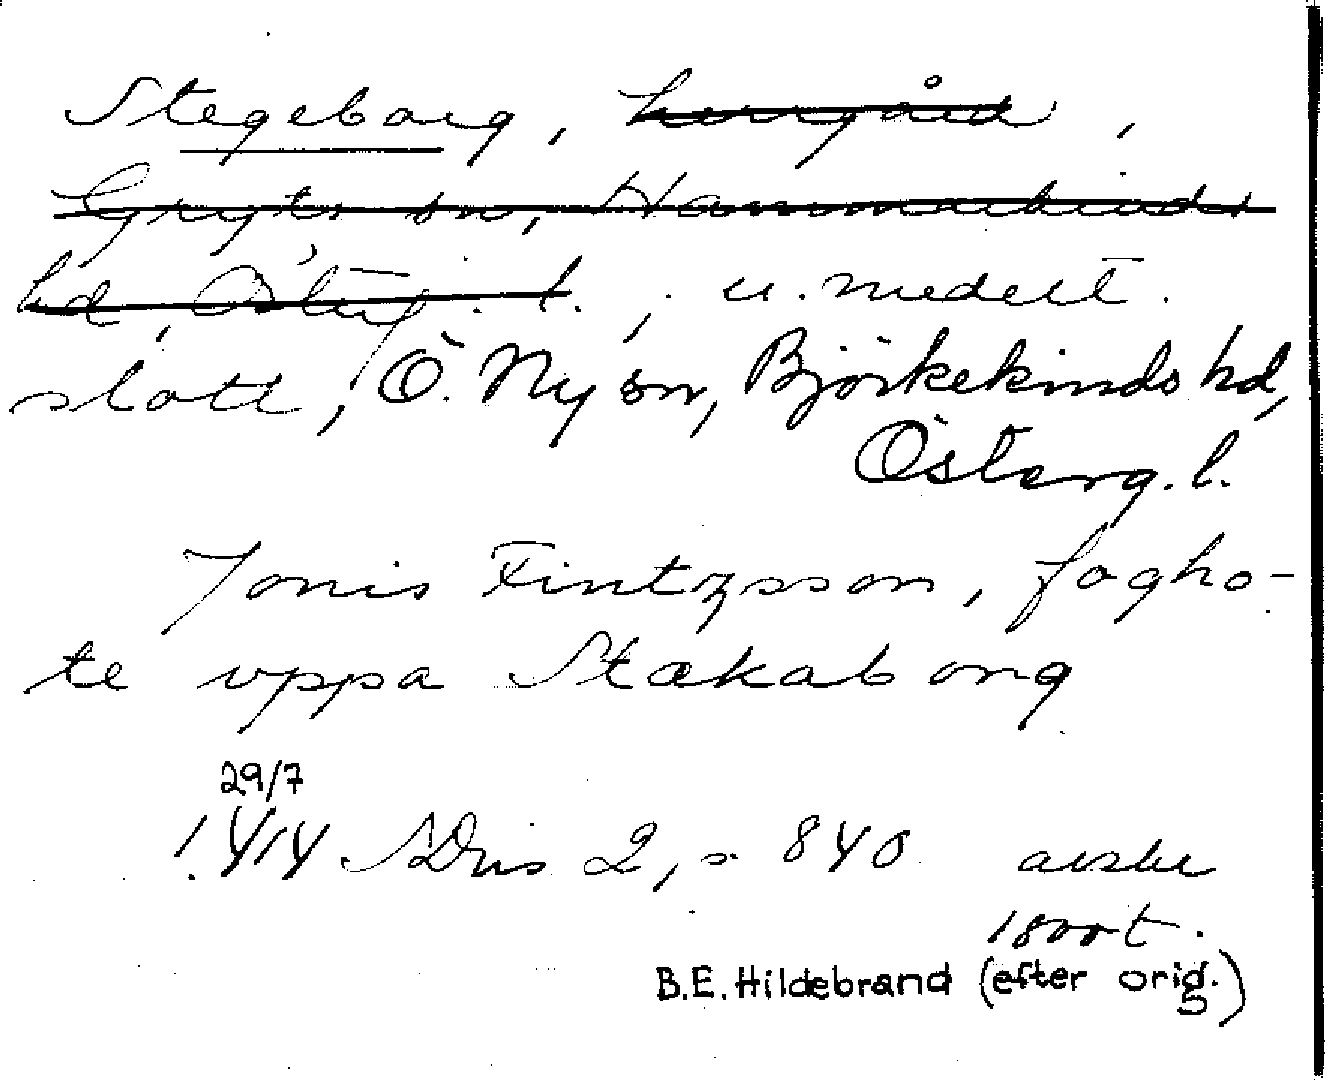 Stegeborg, herrgård,
Gryts sn, Hammarkinds
hd, Österg. l., u. medelt.
slott, Ö. Ny sn, Björkekinds hd,
Österg. l.
Jonis Fintzsson, fogho-
te vppa Stækaborg
29/7
1414 SDns 2, s. 840 avskr
1800 t.
B.E. Hildebrand (efter orig.)